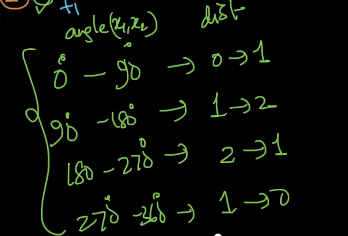 +1
angle(x₁,x₂) dist
0° - 90° → 0→1
90° - 180° → 1→2
180 - 270° → 2→1
270° - 360° → 1→0